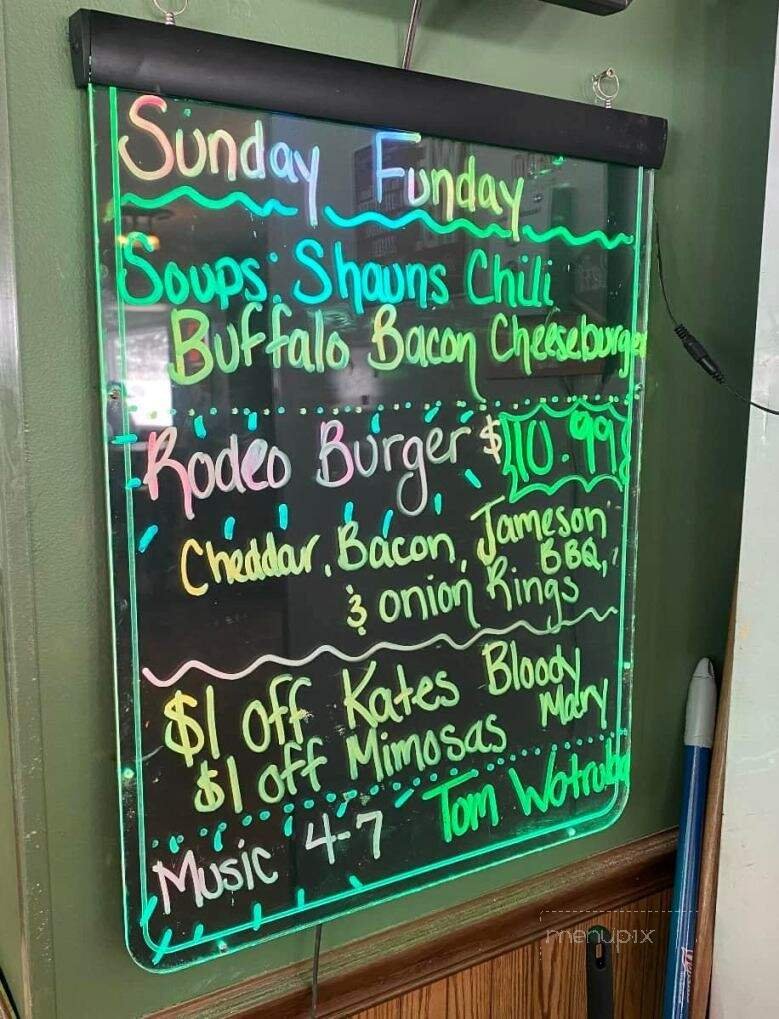 Sunday Funday
Soups: Shauns Chili
Buffalo Bacon Cheeseburger
Rodeo Burger $10.99
Cheddar, Bacon, Jameson
BBQ,
& onion Rings
$1 off Kates Bloody
Mary
$1 off Mimosas
Music 4-7 Tom Wotruba
menupix